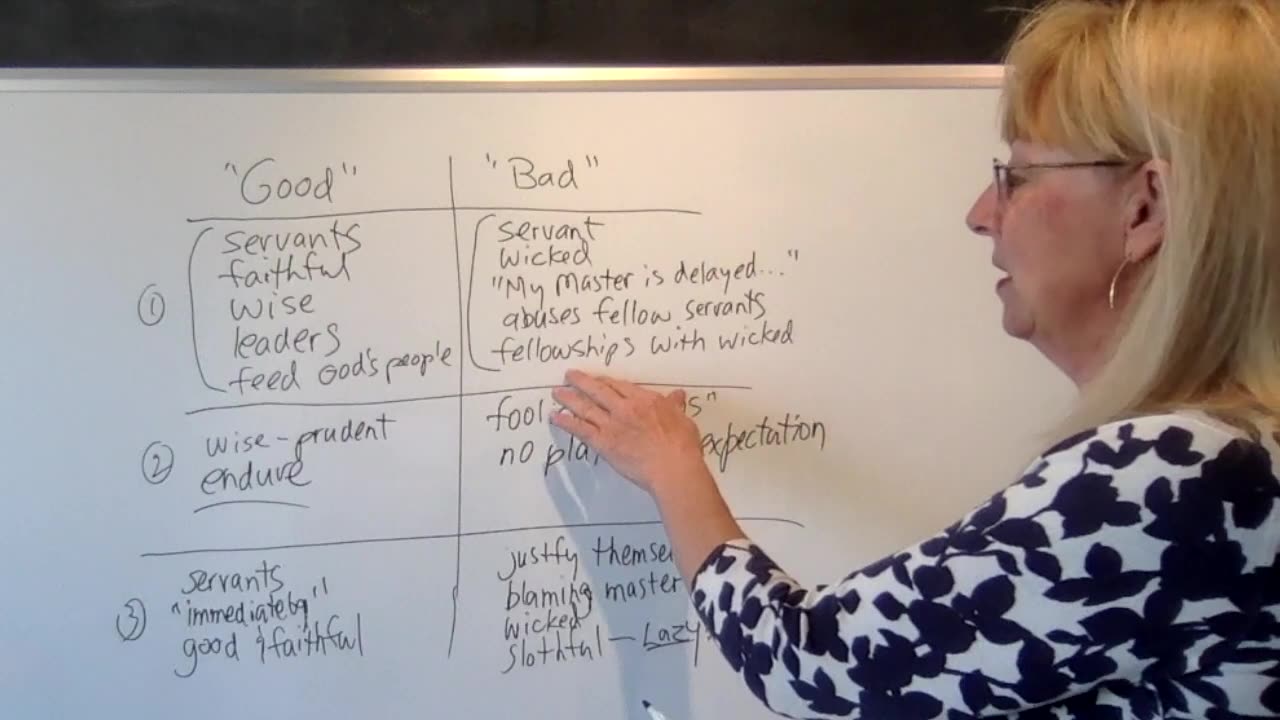 "Good"
"Bad"
①
servants
faithful
wise
leaders
feed God's people
servant
wicked
"My Master is delayed..."
abuses fellow servants
fellowships with wicked
②
wise-prudent
endure
no expectation
③
servants
"immediately"
good & faithful
justfy
blaming master
wicked
slothful - Lazy